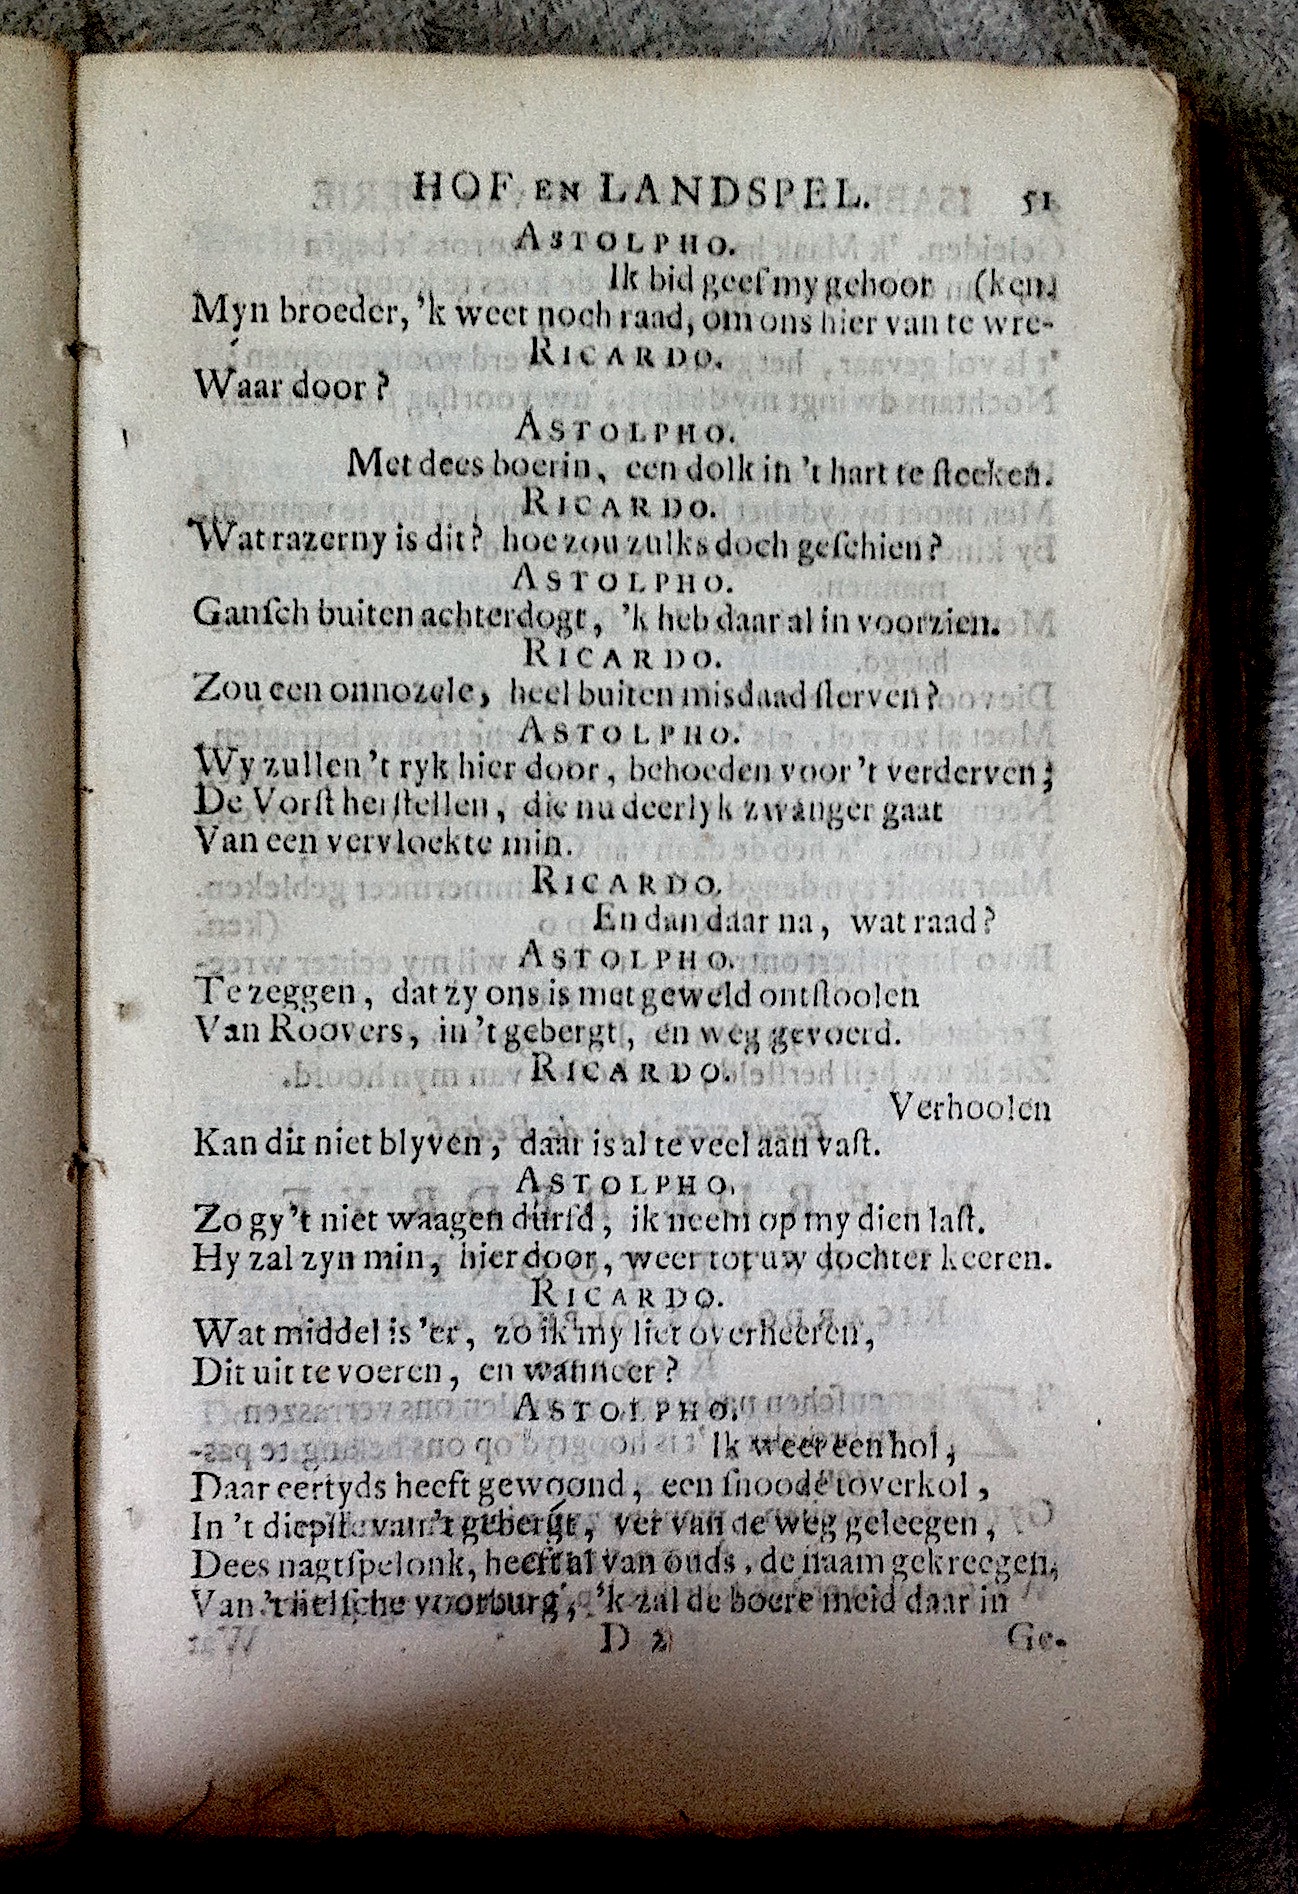 HOF EN LANDSPEL. 51
ASTOLPHO.
Ik bid geef my gehoor (ken.
Myn broeder, 'k weet noch raad, om ons hier van te wre-
RICARDO.
Waar door?
ASTOLPHO.
Met dees boerin, een dolk in 't hart te ſteeken.
RICARDO.
Wat razerny is dit? hoe zou zulks doch geſchien?
ASTOLPHO.
Ganſch buiten achterdogt, 'k heb daar al in voorzien.
RICARDO.
Zou een onnozele, heel buiten misdaad ſterven?
ASTOLPHO.
Wy zullen 't ryk hier door, behoeden voor 't verderven;
De Vorſt herſtellen, die nu deerlyk zwanger gaat
Van een vervloekte min.
RICARDO.
En dan daar na, wat raad?
ASTOLPHO.
Te zeggen, dat zy ons is met geweld ontſtoolen
Van Roovers, in 't gebergt, en weg gevoerd.
RICARDO.
Verhoolen
Kan dit niet blyven, daar is al te veel aan vaſt.
ASTOLPHO.
Zo gy 't niet waagen durfd, ik neem op my dien laſt.
Hy zal zyn min, hier door, weer tot uw dochter keeren.
RICARDO.
Wat middel is 'er, zo ik my liet overheeren,
Dit uit te voeren, en wanneer?
ASTOLPHO.
Ik weet een hol,
Daar eertyds heeft gewoond, een ſnoode toverkol,
In 't diepſte van 't gebergt, ver van de weg geleegen,
Dees nagtſpelonk, heeft al van ouds, de naam gekreegen,
Van 't helſche voorburg, 'k zal de boere meid daar in
D 2 Ge-